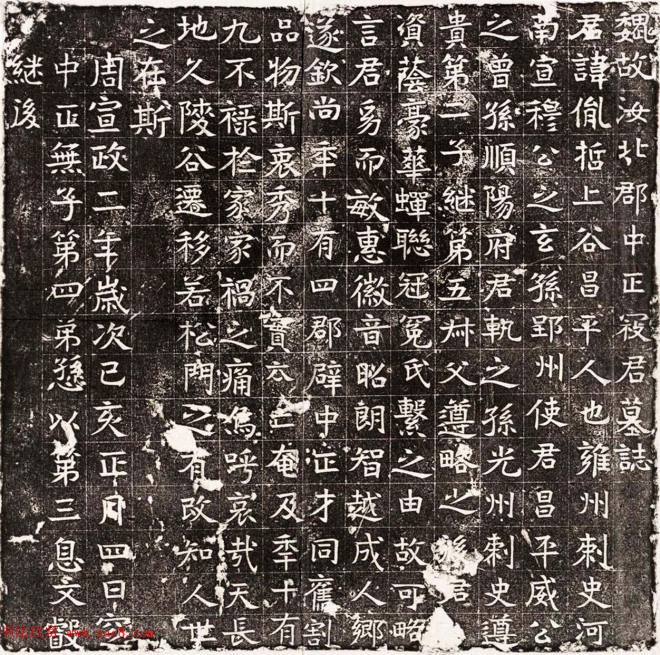 魏故汝北郡中正寇君墓誌
君諱胤哲上谷昌平人也雍州刺史河
南宣穆公之玄孫郢州使君昌平威公
之曾孫順陽府君軌之孫光州刺史遵
貴第二子継第五叔父遵略之孫君
資蔭豪華蟬聯冠冕氏繫之由故可略
言君㓜而敏惠徽音昭朗智越成人鄉
遂欽尚年十有四郡辟中正才同舊割
品物斯衷秀而不實亡奄及年十有
九不祿於家家禍之痛嗚呼哀哉天長
地久陵谷遷移若松門之有改知人世
之在斯
周宣政二年歲次己亥正月四日窆
中正無子第四弟愻以第三息文叡
継後